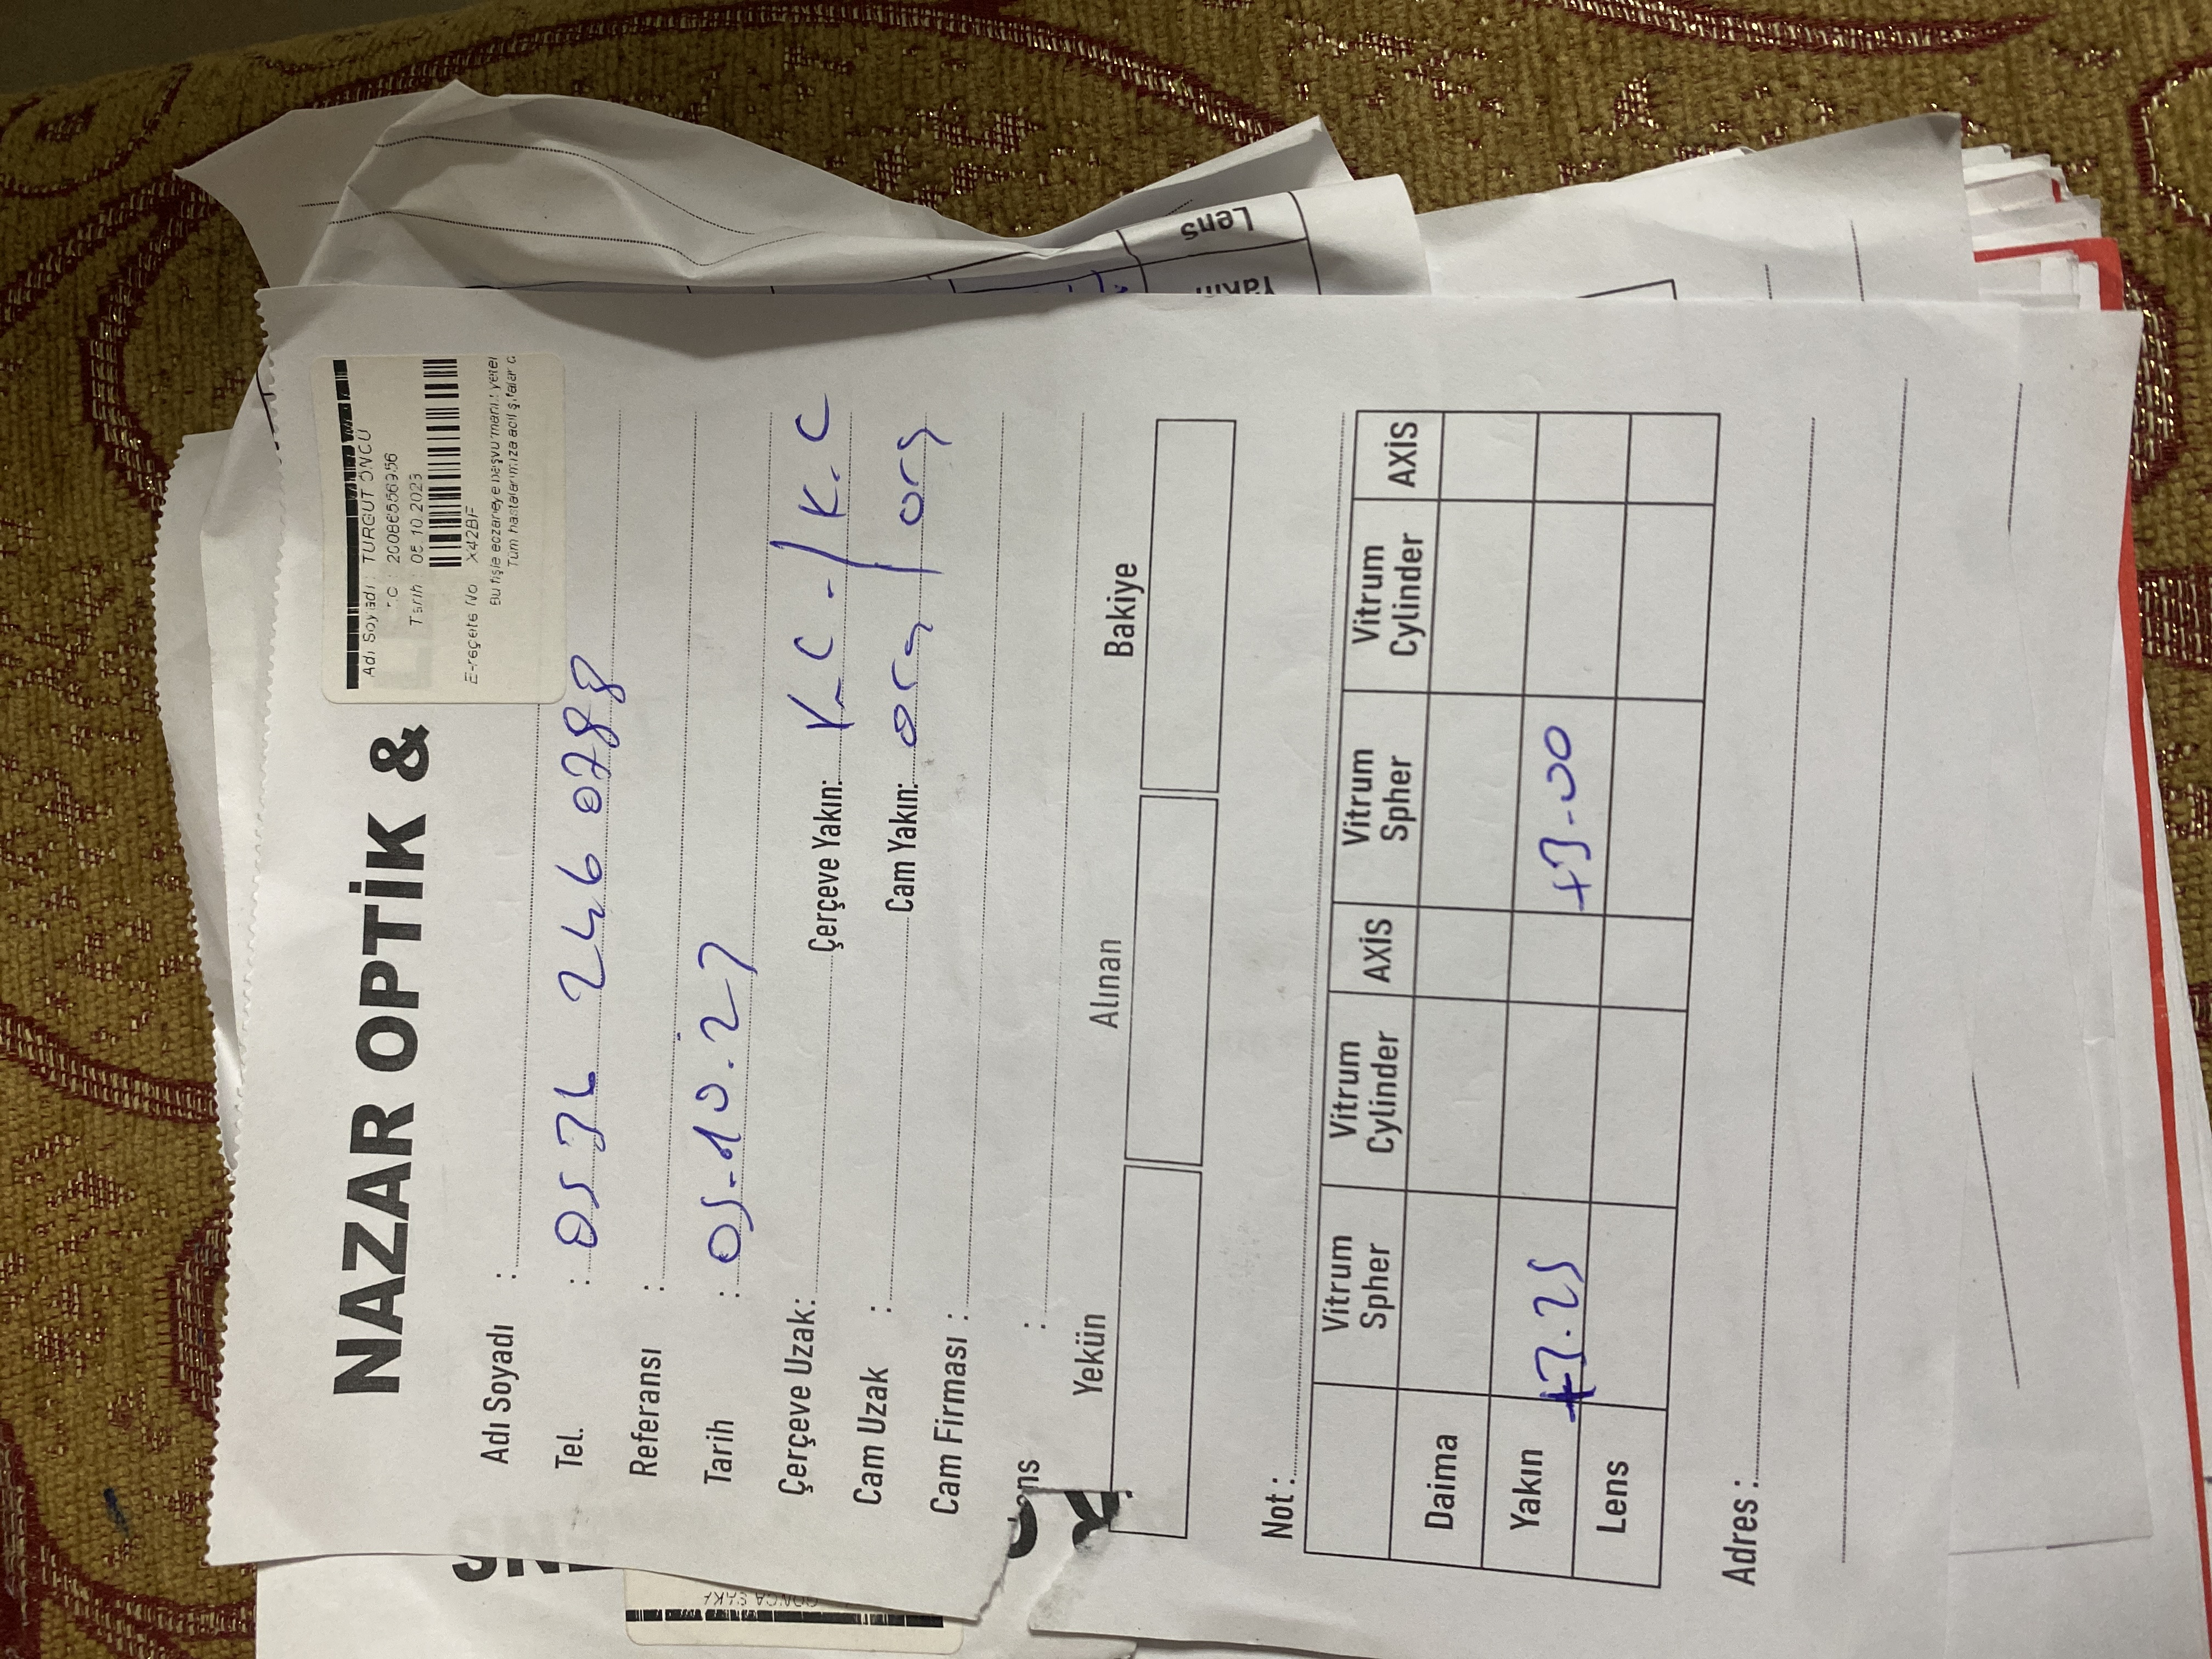 NAZAR OPTİK &
Adı Soyadı : TURGUT ÖNCÜ
20086556956
Tarih : 05.10.2023
E-reçete No X42BF
Bu fişle eczaneye başvurmanız yeter
Tüm hastalarımıza acil şifalar d
Adı Soyadı :
Tel. : 0536 246 0788
Referansı :
Tarih : 05.10.23
Çerçeve Uzak: Çerçeve Yakın: K.C - / K.C
Cam Uzak : Cam Yakın: org / org
Cam Firması :
ens :
Yekün Alınan Bakiye
Not :
Vitrum Spher Vitrum Cylinder AXİS Vitrum Spher Vitrum Cylinder AXİS
Daima
Yakın +3.25 +3.00
Lens
Adres :
Lens